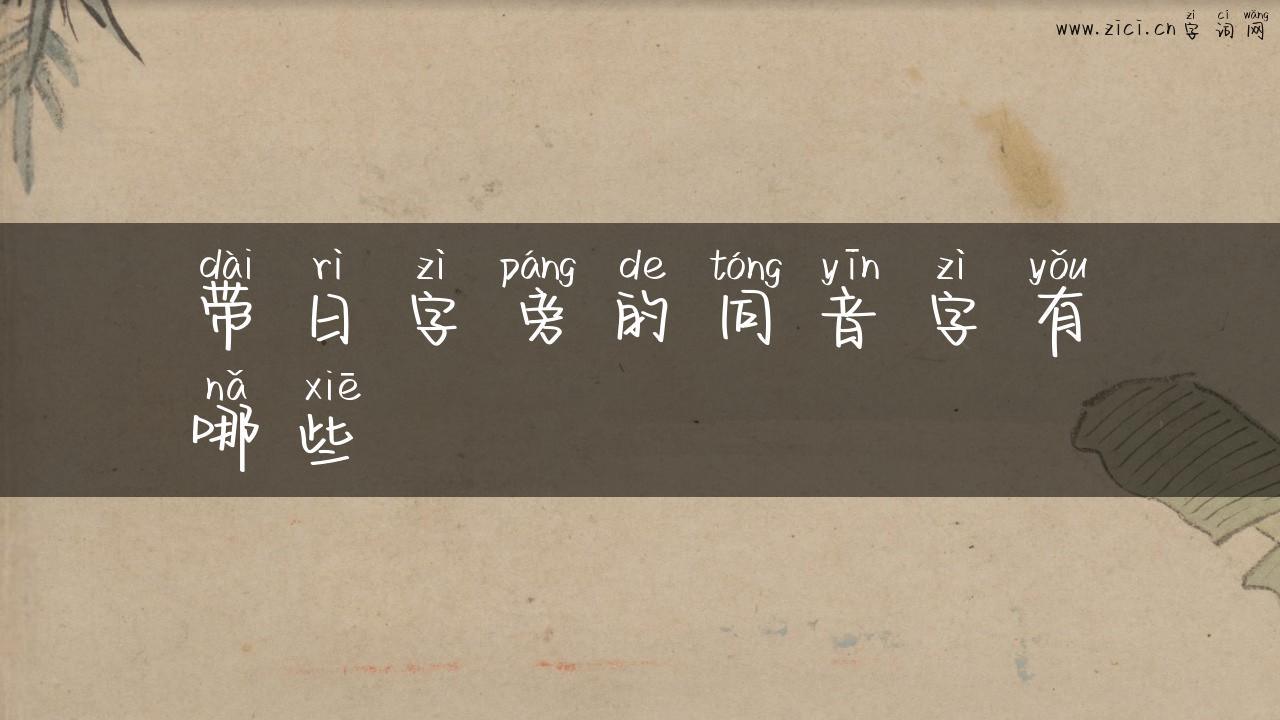 zì cí wǎng
www.zici.cn 字词网
dài rì zì páng de tóng yīn zì yǒu
带日字旁的同音字有
nǎ xiē
哪些